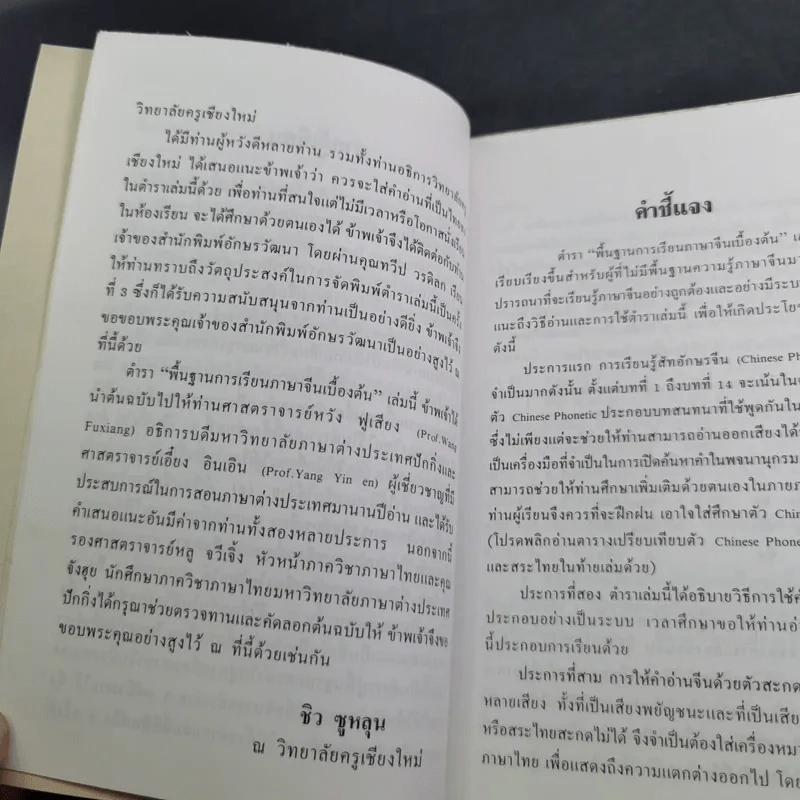 วิทยาลัยครูเชียงใหม่
ได้มีท่านผู้หวังดีหลายท่าน รวมทั้งท่านอธิการวิทยาลัยครู
เชียงใหม่ ได้เสนอแนะข้าพเจ้าว่า ควรจะใส่คำอ่านที่เป็นไทยลง
ในตำราเล่มนี้ด้วย เพื่อท่านที่สนใจแต่ไม่มีเวลาหรือโอกาสนั่งเรียน
ในห้องเรียน จะได้ศึกษาด้วยตนเองได้ ข้าพเจ้าจึงได้ติดต่อกับท่าน
เจ้าของสำนักพิมพ์อักษรวัฒนา โดยผ่านคุณทวีป วรดิลก เรียน
ให้ท่านทราบถึงวัตถุประสงค์ในการจัดพิมพ์ตำราเล่มนี้เป็นครั้ง
ที่ 3 ซึ่งก็ได้รับความสนับสนุนจากท่านเป็นอย่างดียิ่ง ข้าพเจ้าจึง
ขอขอบพระคุณเจ้าของสำนักพิมพ์อักษรวัฒนาเป็นอย่างสูงไว้ ณ
ที่นี้ด้วย
ตำรา “พื้นฐานการเรียนภาษาจีนเบื้องต้น” เล่มนี้ ข้าพเจ้าได้
นำต้นฉบับไปให้ท่านศาสตราจารย์หวัง ฟูเสียง (Prof.Wang
Fuxiang) อธิการบดีมหาวิทยาลัยภาษาต่างประเทศปักกิ่งและ
ศาสตราจารย์เอี๋ยง อินเอิน (Prof.Yang Yin en) ผู้เชี่ยวชาญที่มี
ประสบการณ์ในการสอนภาษาต่างประเทศมานานปีอ่าน และได้รับ
คำเสนอแนะอันมีค่าจากท่านทั้งสองหลายประการ นอกจากนี้
รองศาสตราจารย์หลู จวีเจิ้ง หัวหน้าภาควิชาภาษาไทยและคุณ
จังฮุย นักศึกษาภาควิชาภาษาไทยมหาวิทยาลัยภาษาต่างประเทศ
ปักกิ่งได้กรุณาช่วยตรวจทานและคัดลอกต้นฉบับให้ ข้าพเจ้าจึงขอ
ขอบพระคุณอย่างสูงไว้ ณ ที่นี้ด้วยเช่นกัน
ชิว ซูหลุน
ณ วิทยาลัยครูเชียงใหม่
คำชี้แจง
ตำรา “พื้นฐานการเรียนภาษาจีนเบื้องต้น” เ
เรียบเรียงขึ้นสำหรับผู้ที่ไม่มีพื้นฐานความรู้ภาษาจีนมา
ปรารถนาที่จะเรียนรู้ภาษาจีนอย่างถูกต้องและอย่างมีระบ
แนะถึงวิธีอ่านและการใช้ตำราเล่มนี้ เพื่อให้เกิดประโย
ดังนี้
ประการแรก การเรียนรู้สัทอักษรจีน (Chinese Ph
จำเป็นมากดังนั้น ตั้งแต่บทที่ 1 ถึงบทที่ 14 จะเน้นใน
ตัว Chinese Phonetic ประกอบบทสนทนาที่ใช้พูดกันใน
ซึ่งไม่เพียงแต่จะช่วยให้ท่านสามารถอ่านออกเสียงได้
เป็นเครื่องมือที่จำเป็นในการเปิดค้นหาคำในพจนานุกรม
สามารถช่วยให้ท่านศึกษาเพิ่มเติมด้วยตนเองในภาย
ท่านผู้เรียนจึงควรที่จะฝึกฝน เอาใจใส่ศึกษาตัว Chi
(โปรดพลิกอ่านตารางเปรียบเทียบตัว Chinese Phon
และสระไทยในท้ายเล่มด้วย)
ประการที่สอง ตำราเล่มนี้ได้อธิบายวิธีการใช้
ประกอบอย่างเป็นระบบ เวลาศึกษาขอให้ท่านอ่
นี้ประกอบการเรียนด้วย
ประการที่สาม การให้คำอ่านจีนด้วยตัวสะกด
หลายเสียง ทั้งที่เป็นเสียงพยัญชนะและที่เป็นเสีย
หรือสระไทยสะกดไม่ได้ จึงจำเป็นต้องใส่เครื่องหม
ภาษาไทย เพื่อแสดงถึงความแตกต่างออกไป โด